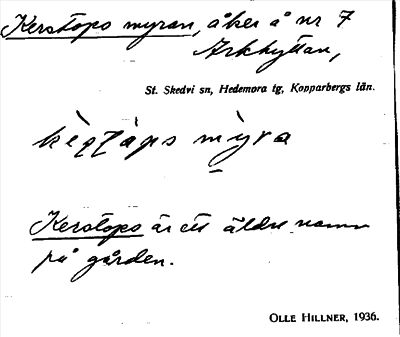 Kerstops myran, åker å nr 7
Arkhyttan,
St. Skedvi sn, Hedemora tg, Kopparbergs län.
Kerstops är ett äldre namn
på gården.
OLLE HILLNER, 1936.